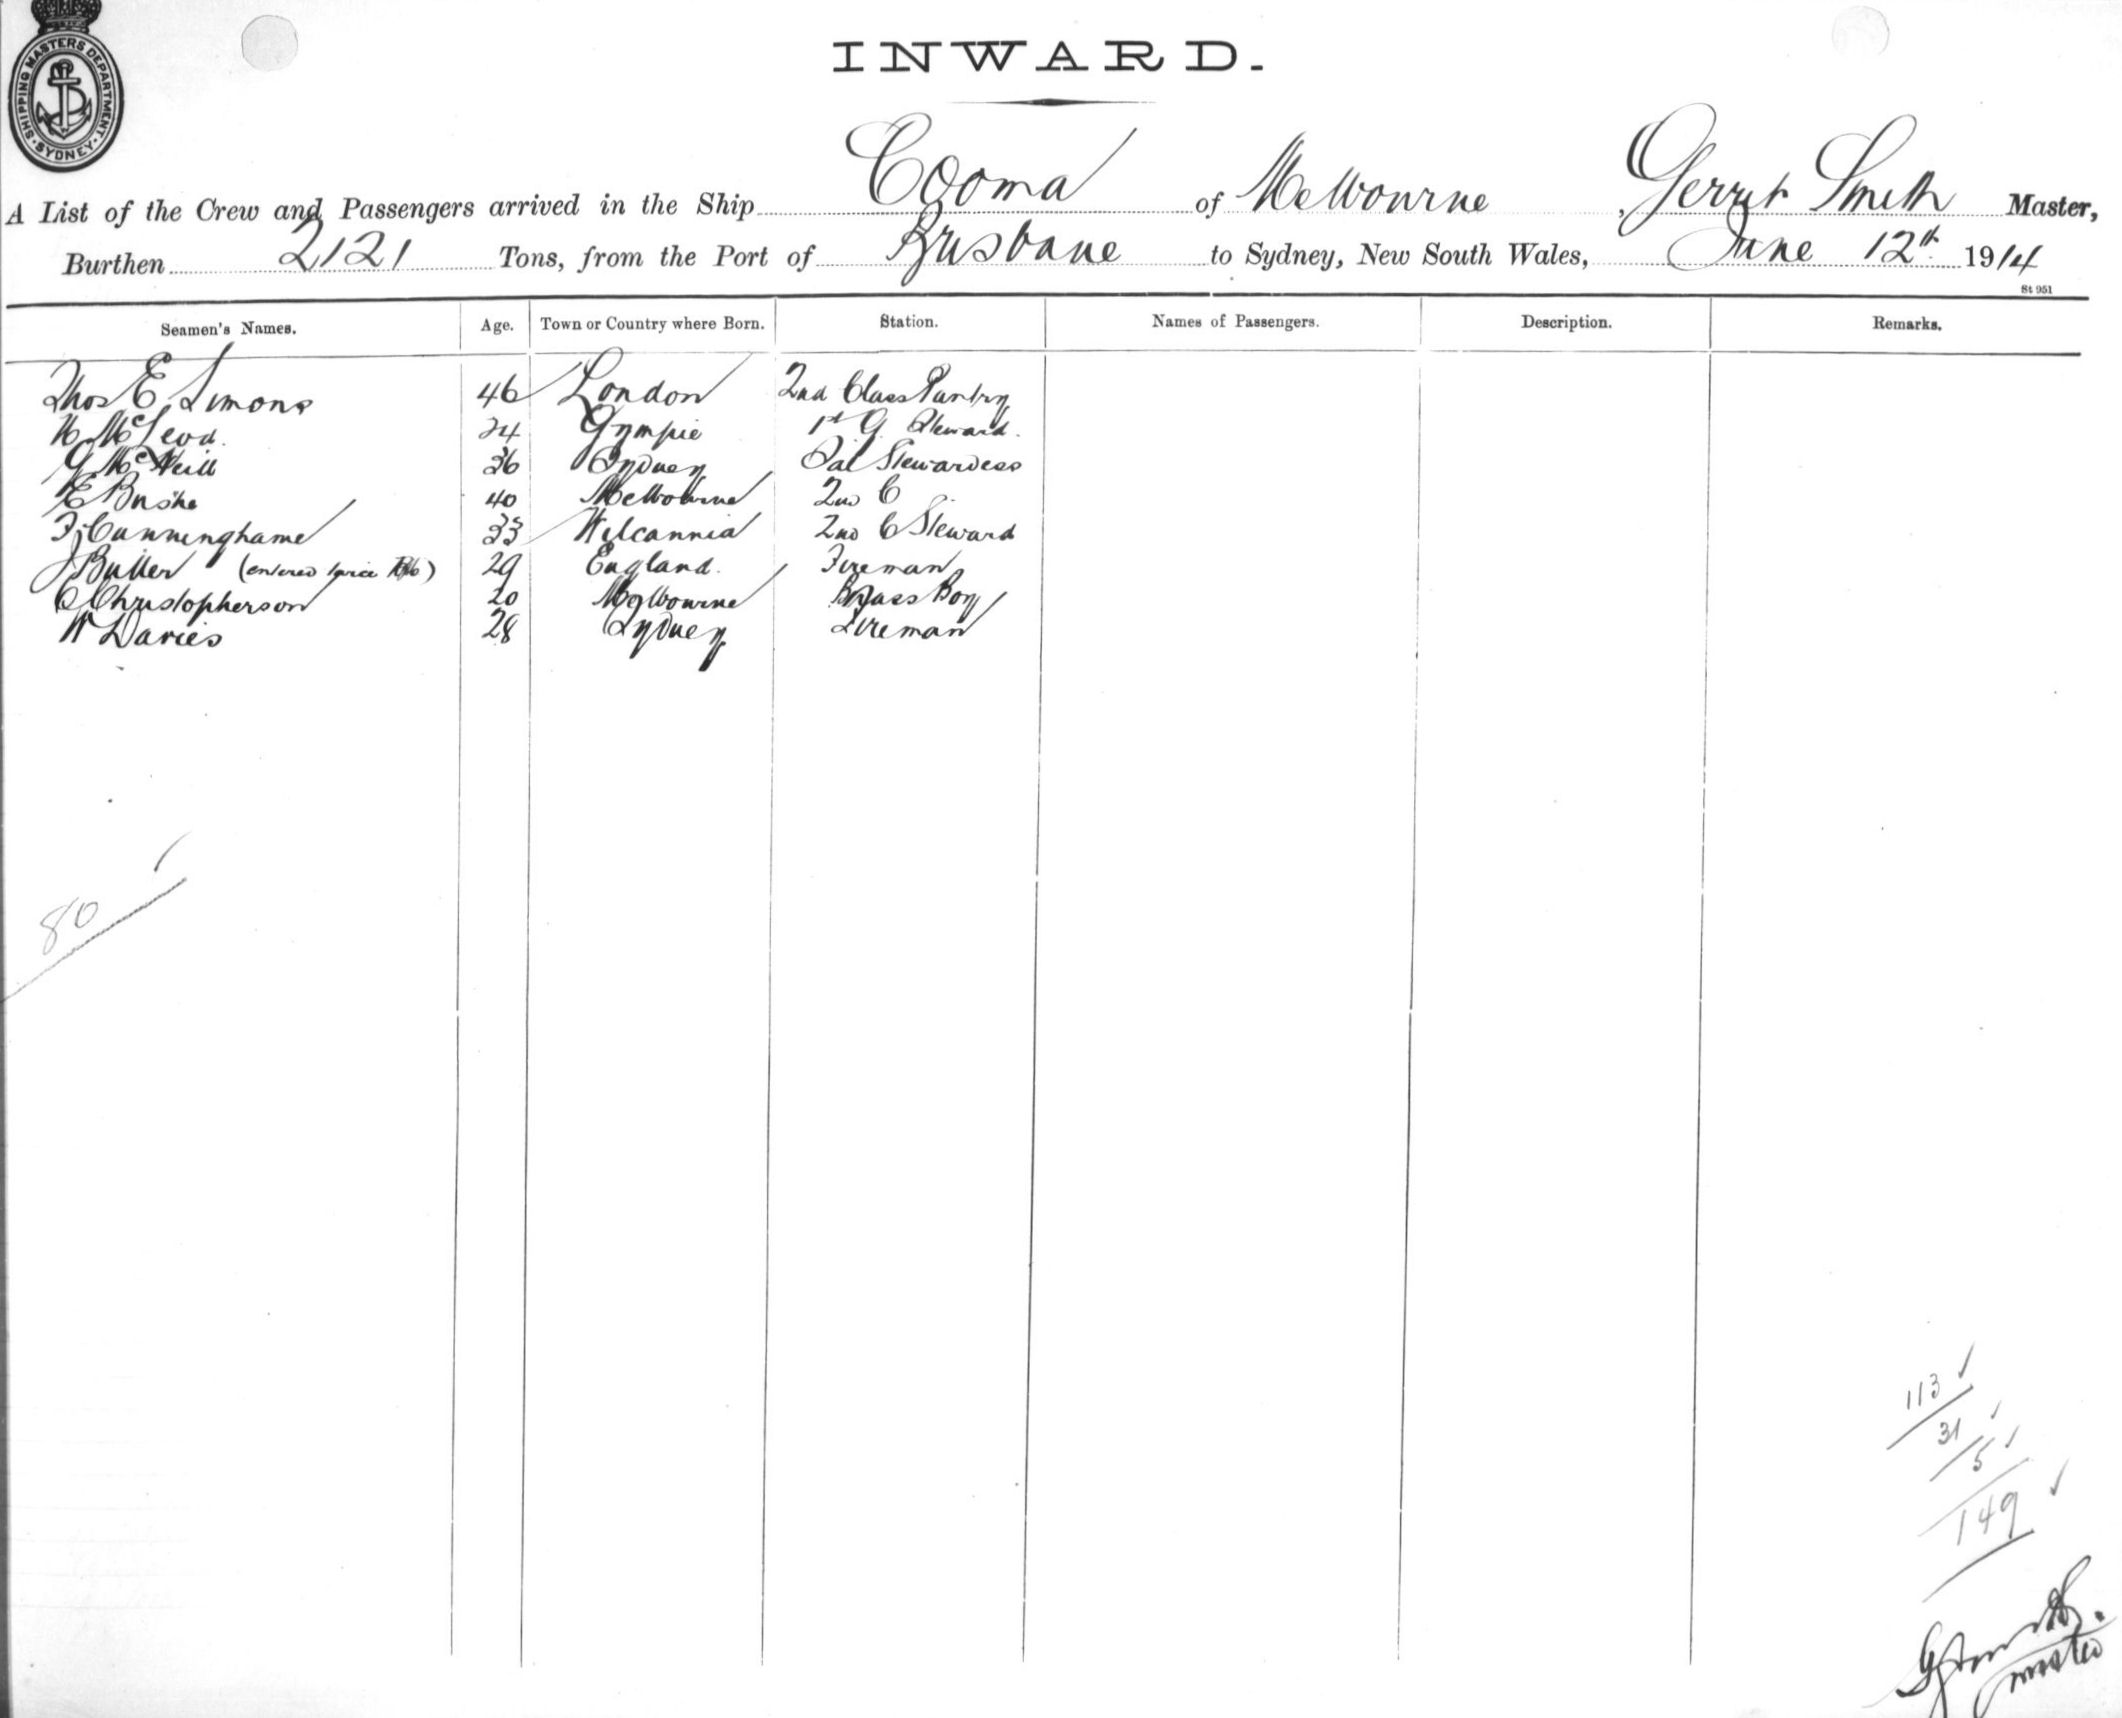 SHIPPING MASTERS DEPARTMENT
SYDNEY
INWARD.
A List of the Crew and Passengers arrived in the Ship Cooma of Melbourne, Gerrit Smith Master,
Burthen 2121 Tons, from the Port of Brisbane to Sydney, New South Wales, June 12th 1914
St 951
Seamen's Names. Age. Town or Country where Born. Station. Names of Passengers. Description. Remarks.
Thos E Simons 46 London 2nd Class Pantry
McLeod. 24 Gympie 1st G Steward.
G McNeill 36 Sydney Sal Stewardess
E Bushe 40 Melbourne 2nd C
F Cunninghame 33 Wilcannia 2nd C Steward
J Butler (entered twice) 29 England. Fireman
C Christopherson 20 Melbourne Brass Boy
W Davies 28 Sydney Fireman
80
113
31
5
149
G Smith.
master